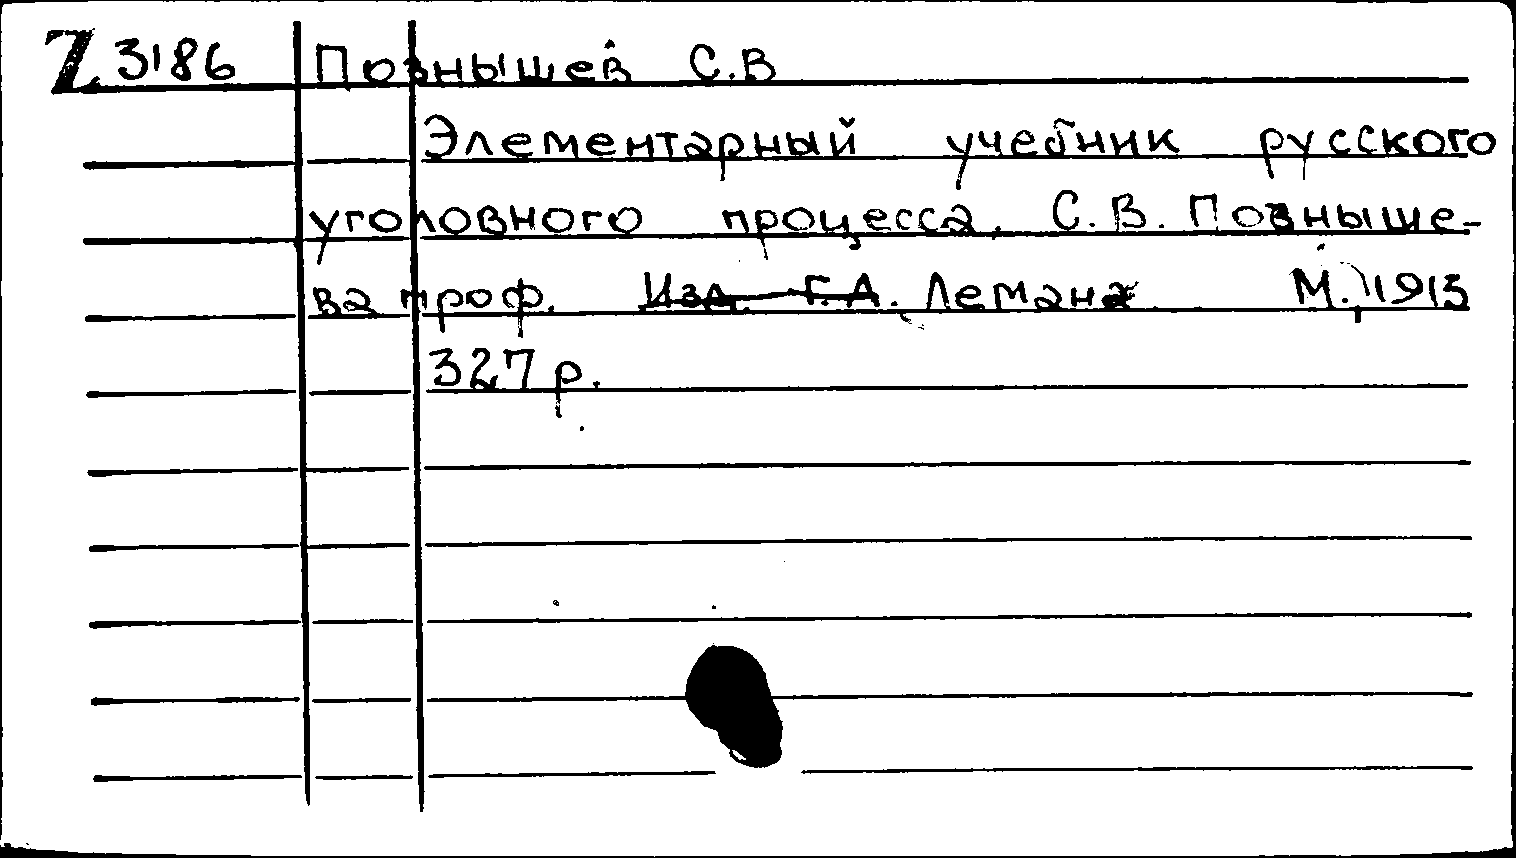 Z 3186 Познышев С.В
Элементарный учебник русского
уголовного процесса. С.В. Позныше-
ва проф. Изд. Г.А. Лемана М., 1913
327 p.